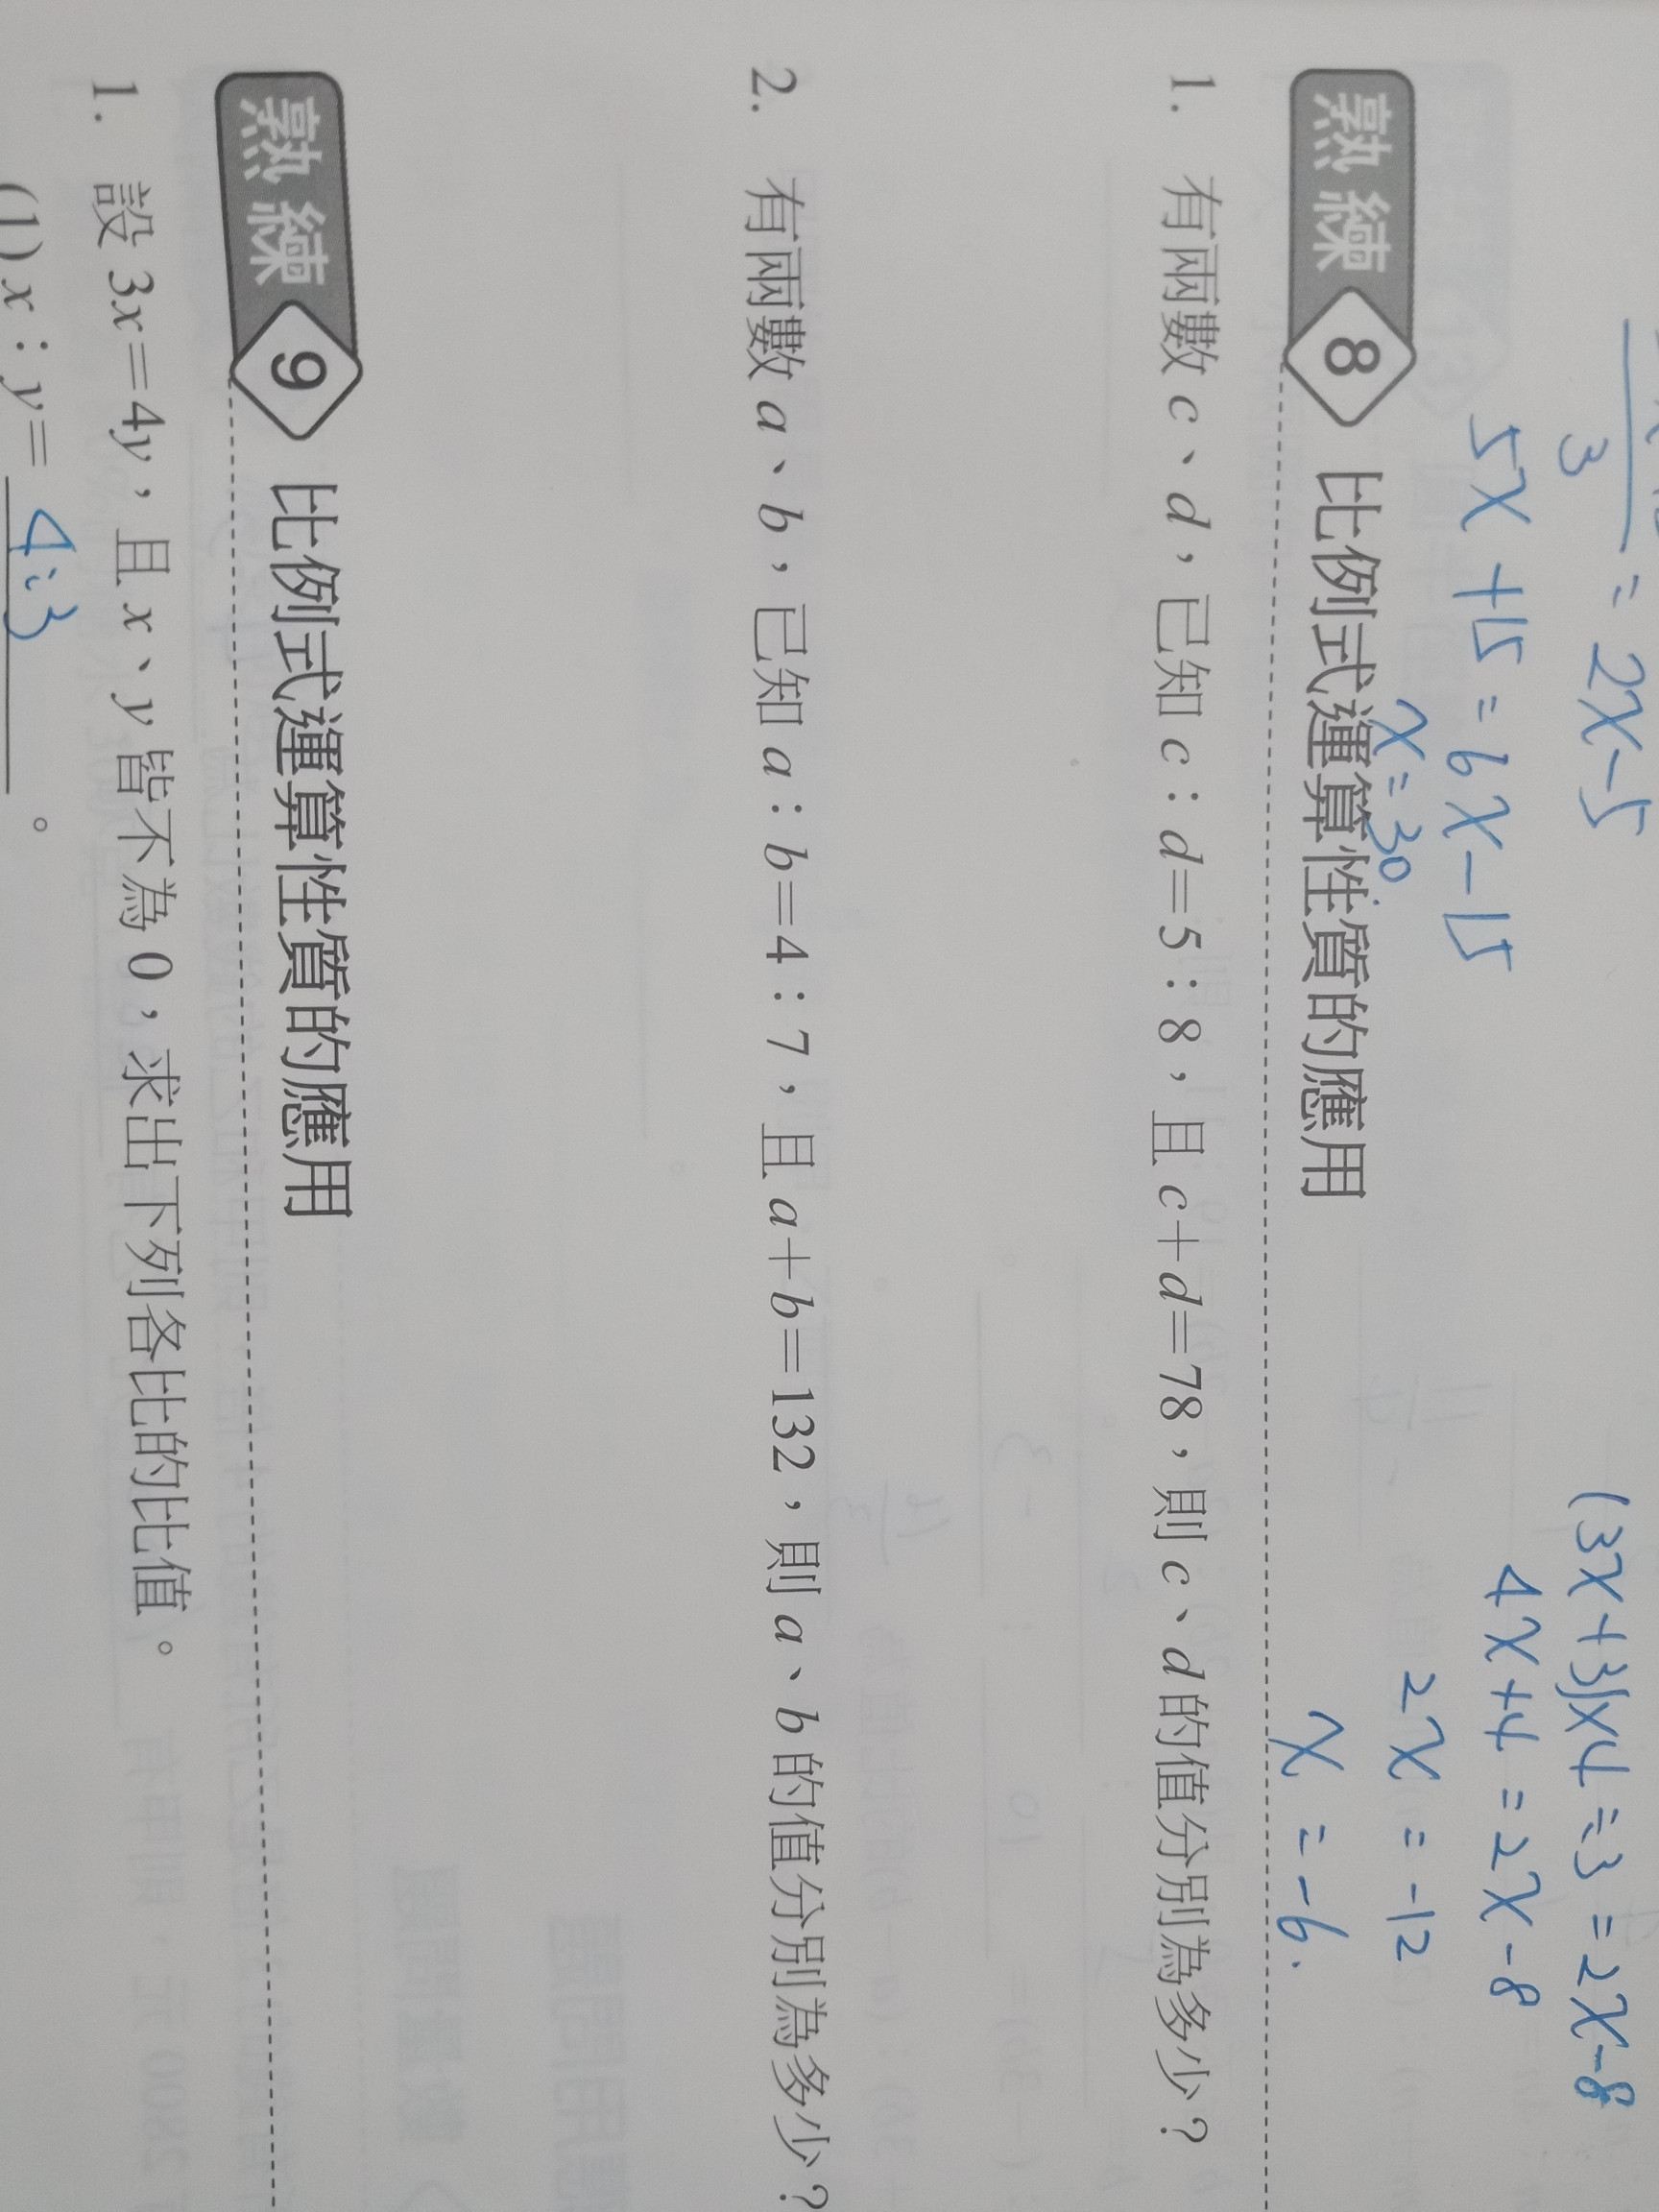 3 = 2x-5
5x+15=6x-15
x=30.
(3x+3)x4÷3=2x-8
4x+4=2x-8
2x=-12
x=-6.
熟練 8 比例式運算性質的應用
1. 有兩數 c、d，已知 c：d＝5：8，且 c＋d＝78，則 c、d 的值分別為多少？
2. 有兩數 a、b，已知 a：b＝4：7，且 a＋b＝132，則 a、b 的值分別為多少？
熟練 9 比例式運算性質的應用
1. 設 3x＝4y，且 x、y 皆不為 0，求出下列各比的比值。
(1) x：y＝ 4:3 。